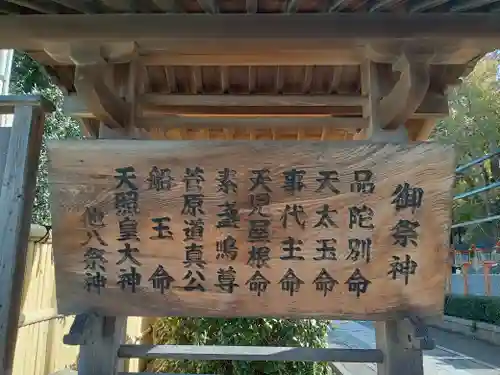 御祭神
品陀別命
天太玉命
事代主命
天児屋根命
素盏嗚尊
菅原道真公
船玉命
天照皇大神
他八祭神